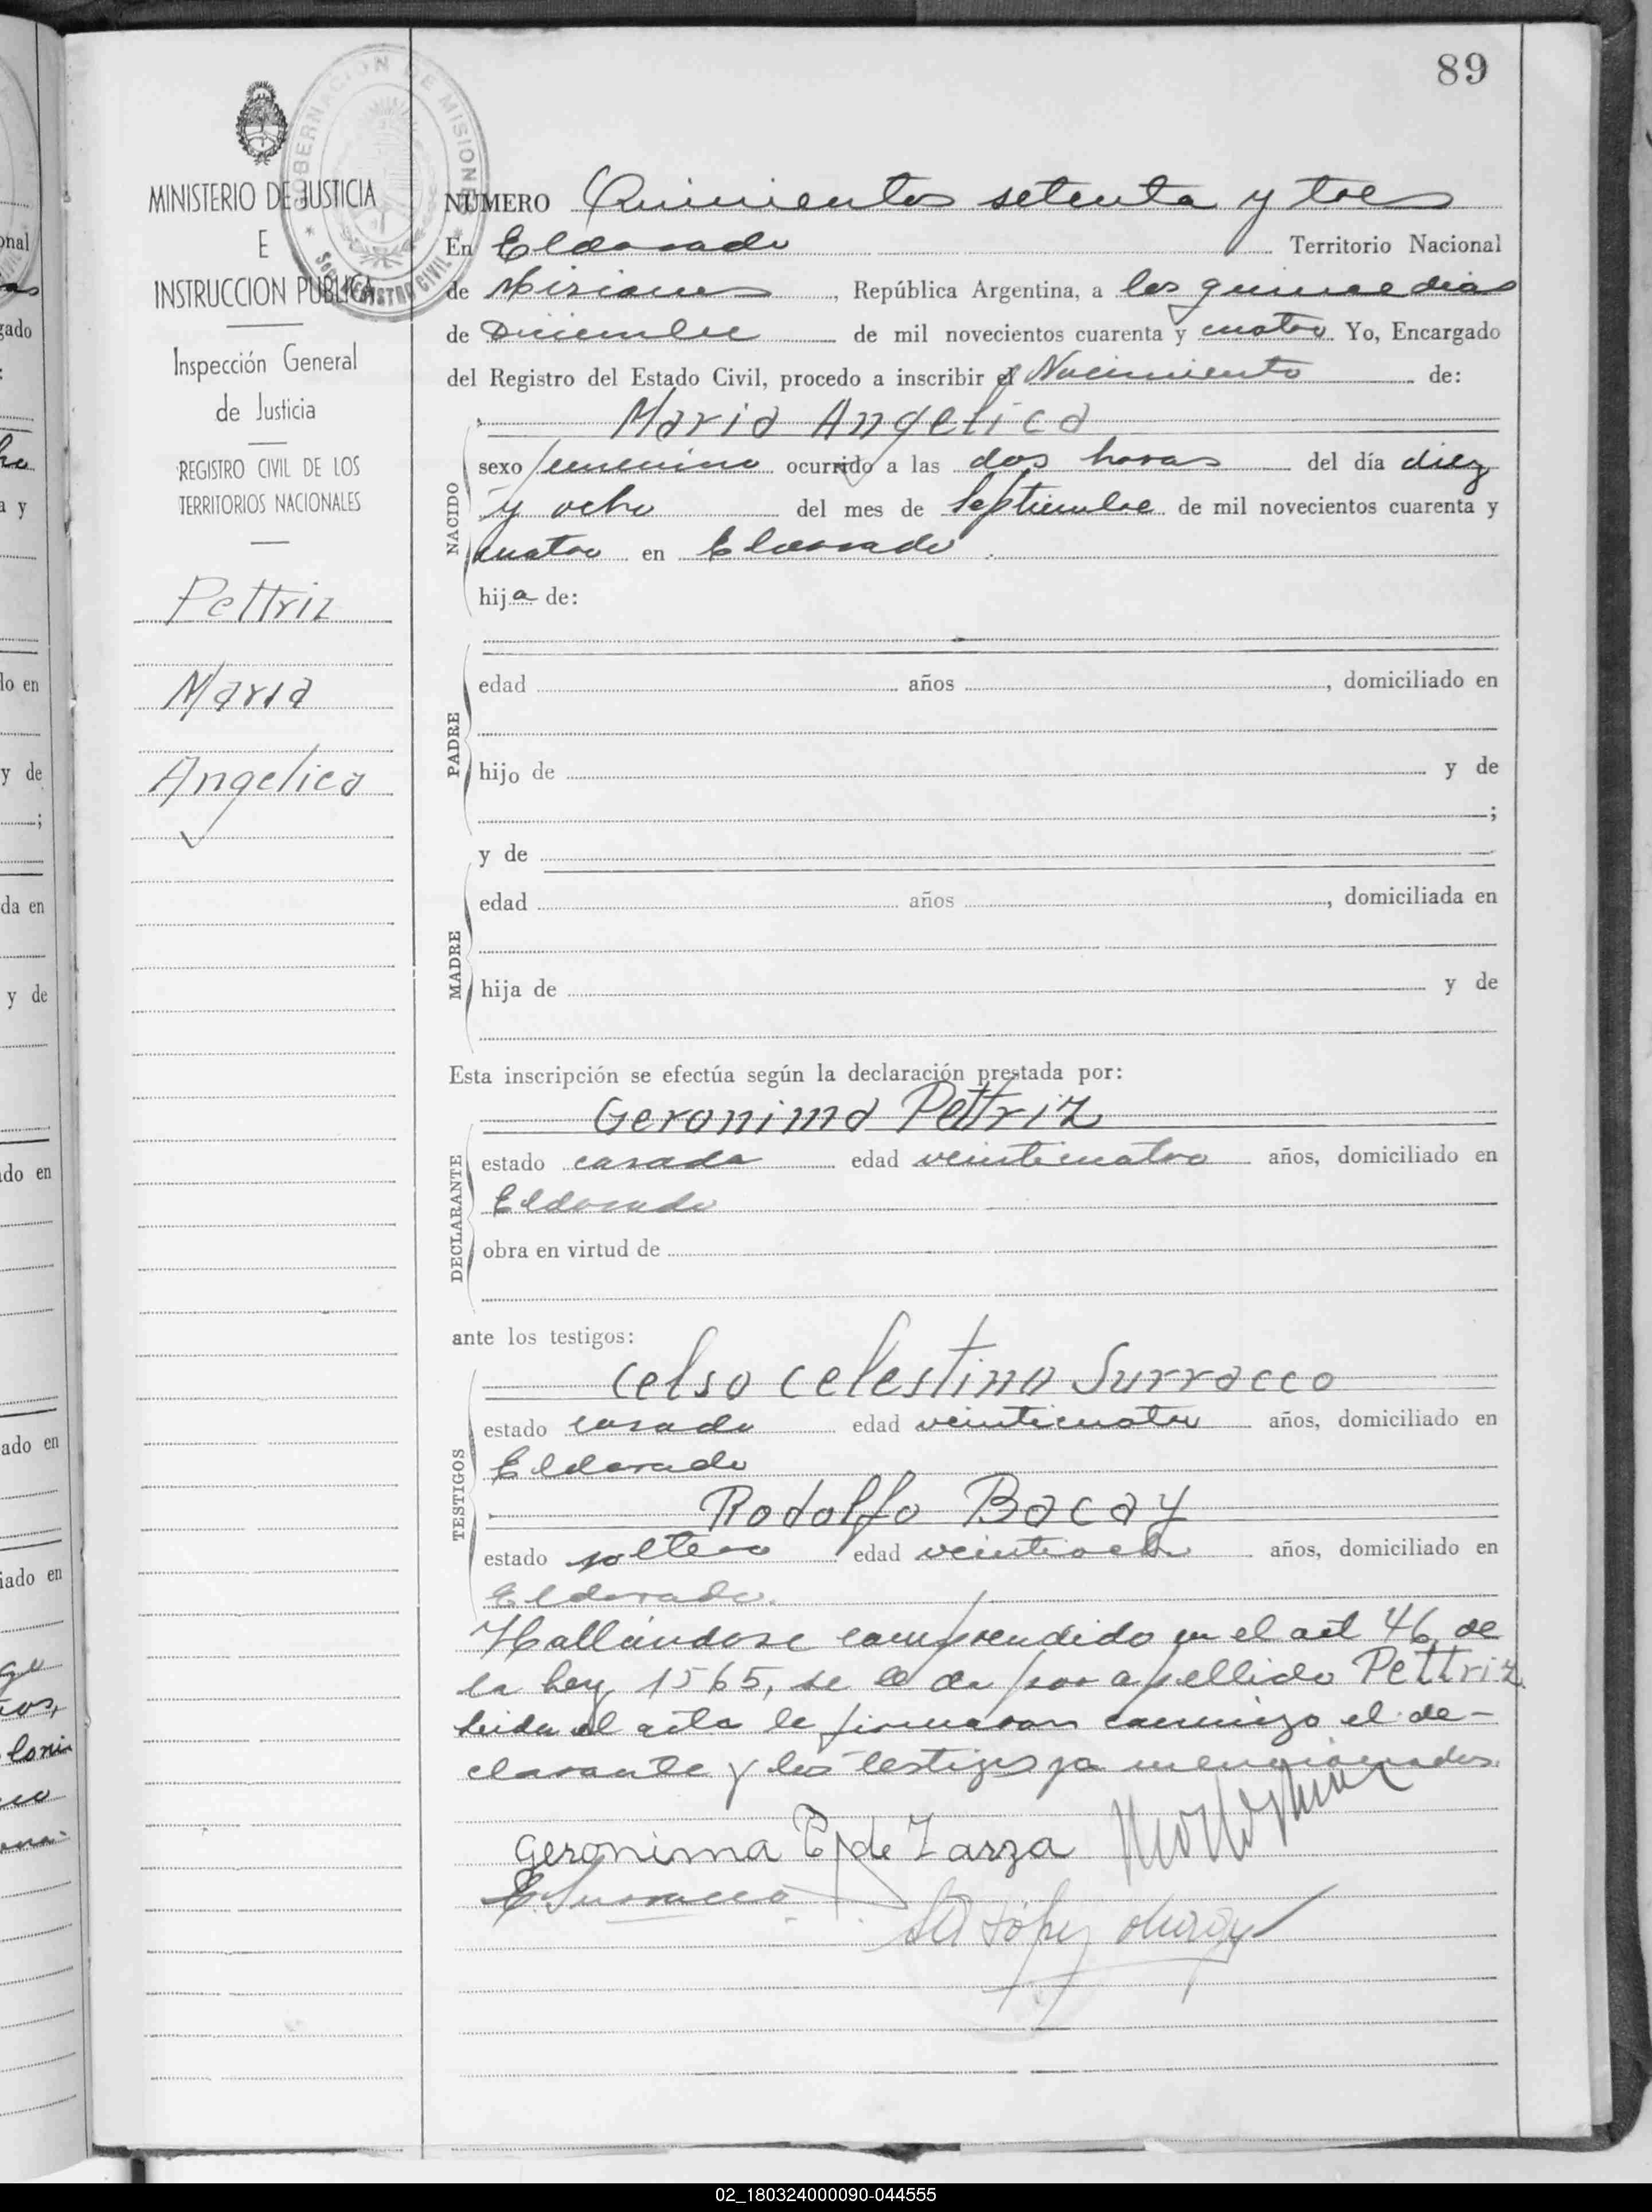 89
GOBERNACION DE MISIONES
REGISTRO CIVIL
MINISTERIO DE JUSTICIA
E
INSTRUCCION PUBLICA
Inspección General
de Justicia
REGISTRO CIVIL DE LOS
TERRITORIOS NACIONALES
Pettriz
Maria
Angelica
NÚMERO Quinientos setenta y tres
En Eldorado Territorio Nacional
de Misiones, República Argentina, a los quince dias
de Diciembre de mil novecientos cuarenta y cuatro Yo, Encargado
del Registro del Estado Civil, procedo a inscribir el Nacimiento de:
Maria Angelica
NACIDO
sexo femenino ocurrido a las dos horas del día diez
y ocho del mes de Septiembre de mil novecientos cuarenta y
cuatro en Eldorado.
hija de:
PADRE
edad años , domiciliado en
hijo de y de
;
y de
MADRE
edad años , domiciliada en
hija de y de
Esta inscripción se efectúa según la declaración prestada por:
Geronima Pettriz
DECLARANTE
estado casada edad veinticuatro años, domiciliado en
Eldorado
obra en virtud de
ante los testigos:
Celso Celestino Surracco
TESTIGOS
estado casado edad veinticuatro años, domiciliado en
Eldorado
Rodolfo Bacay
estado soltero edad veintiocho años, domiciliado en
Eldorado.
Hallándose comprendido en el art 46 de
la ley 1565, se le da por apellido Pettriz.
Leida el acta la firmaron conmigo el de-
clarante y los testigos ya mencionados.
Geronima P de Zarza
C. Surracco
02_180324000090-044555